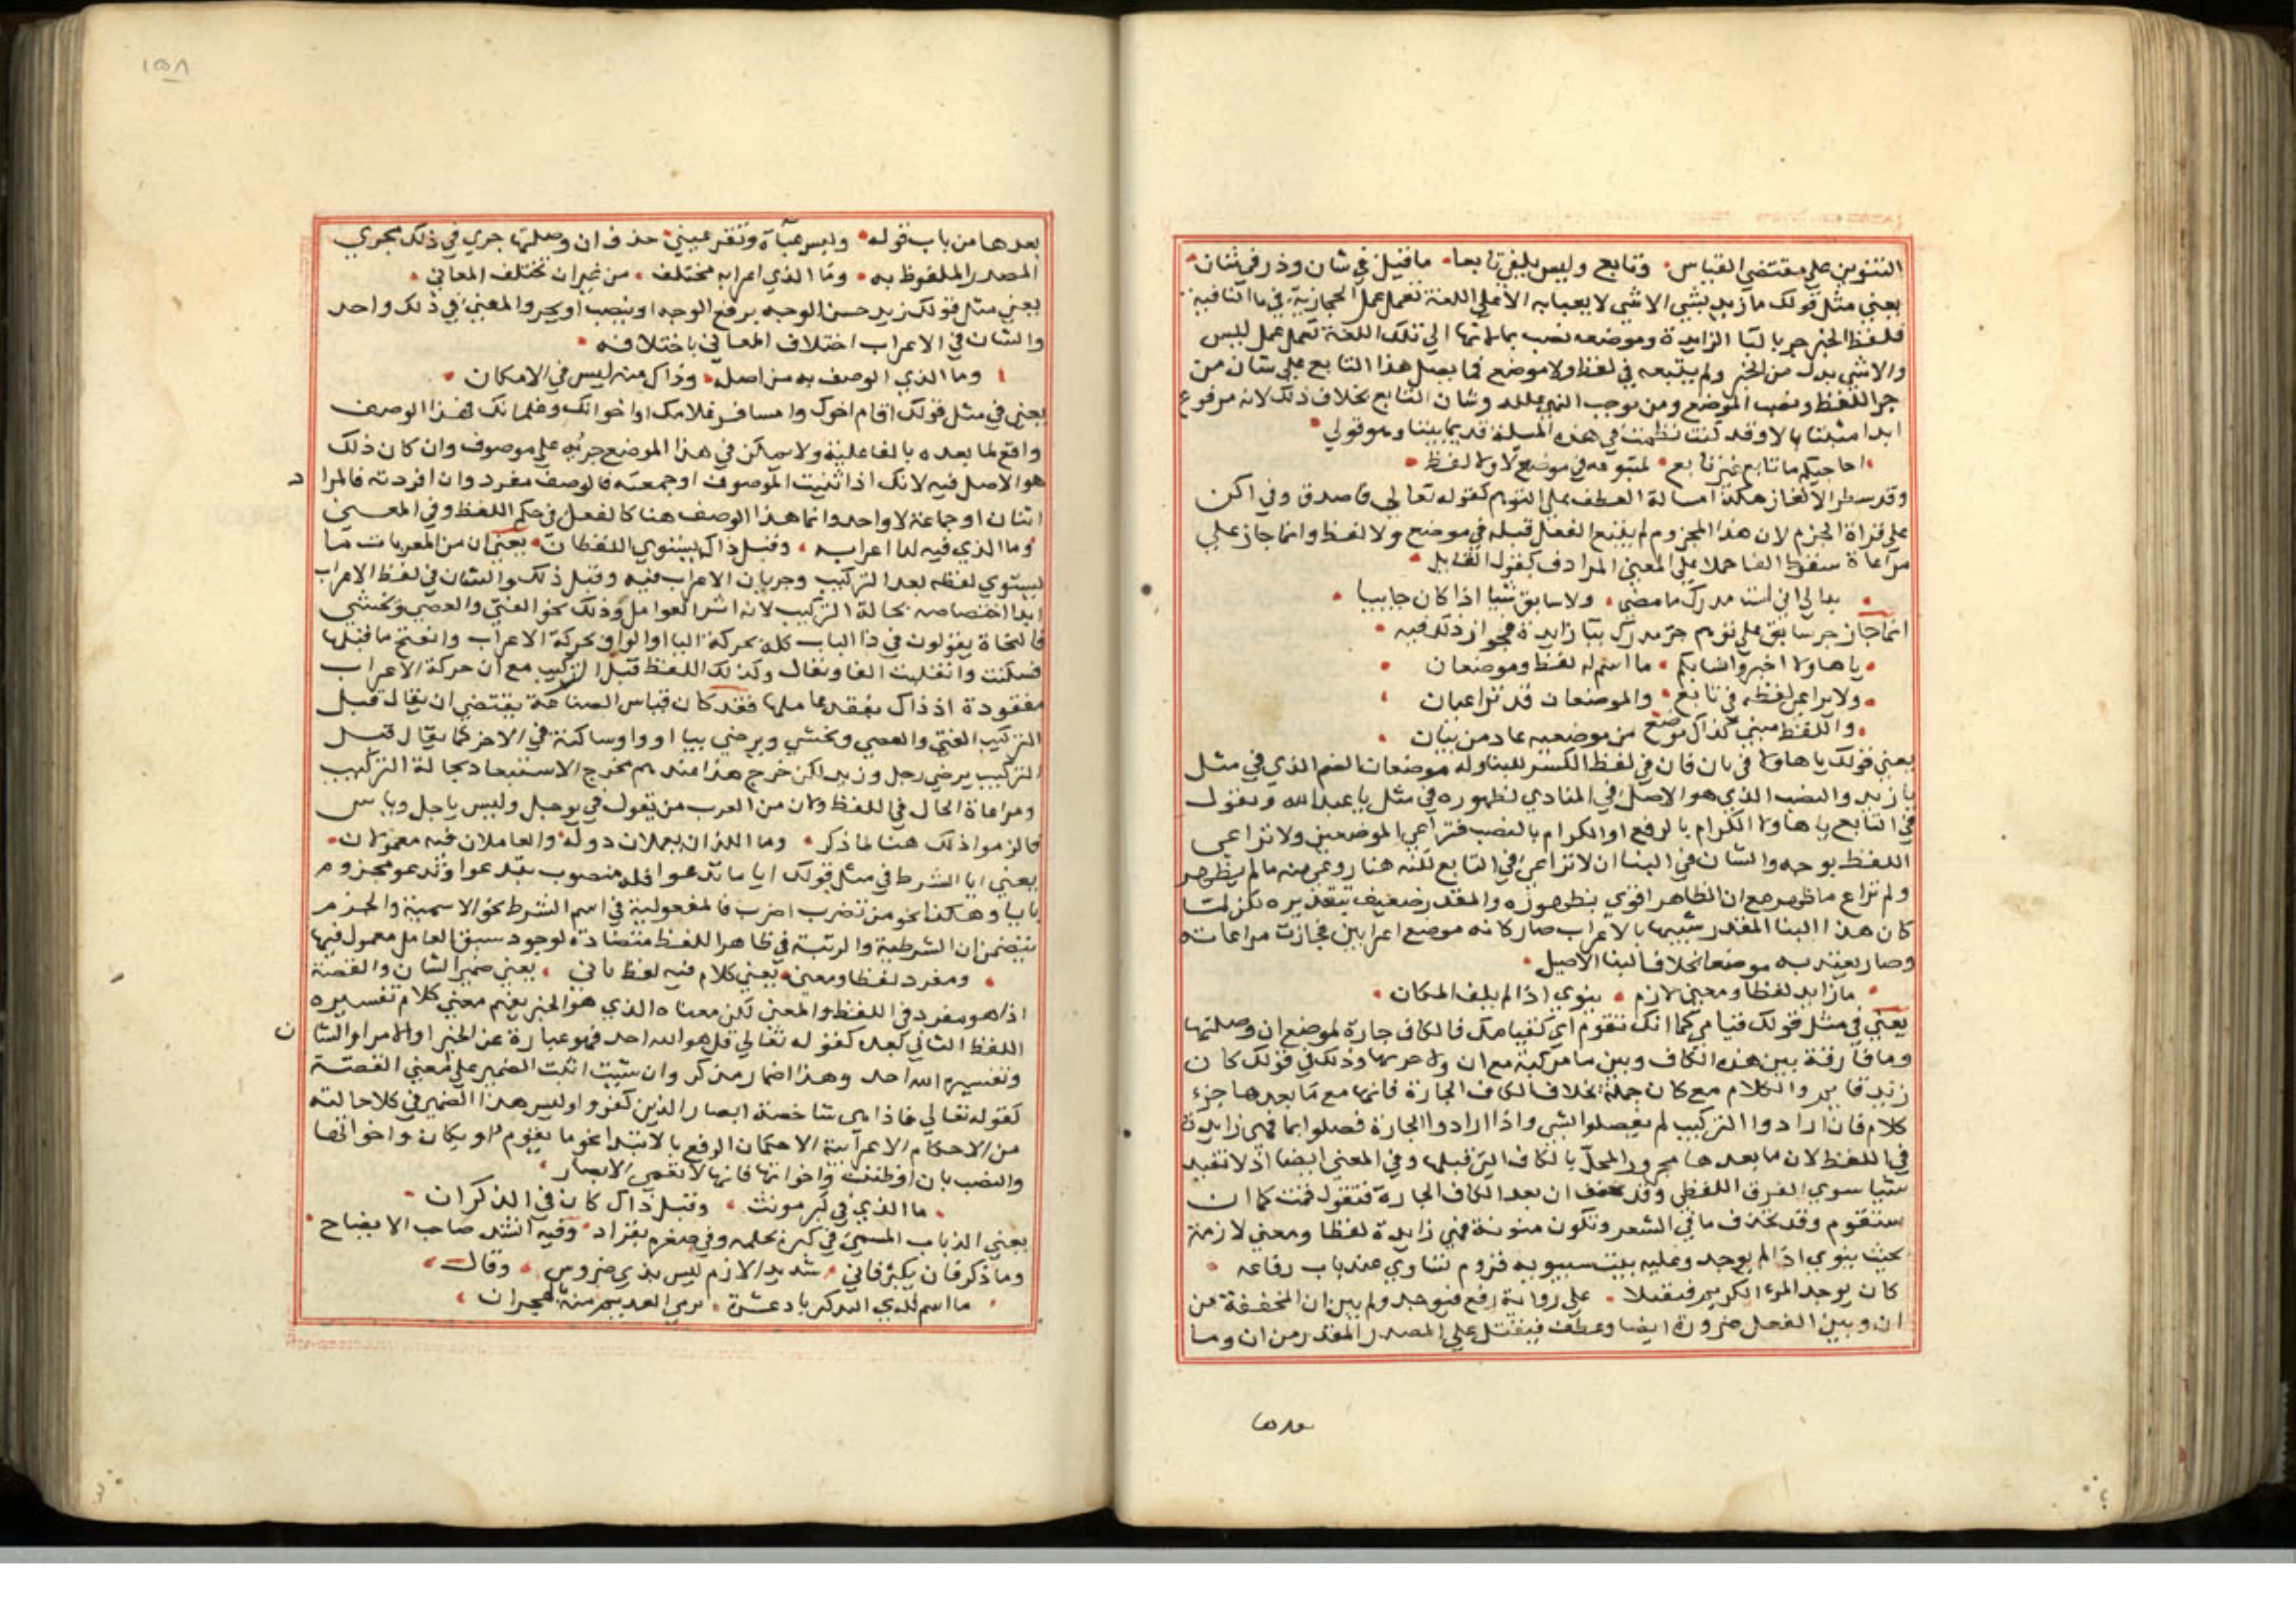 التنوين علي مقتضي القياس وتابع وليس يلفي تابعا ما قيل في شان وذر في شان
يعني مثل قولك ما زيد بشي الا شي لا يعبا به الا علي اللغة تعمل عمل الحجازية في ما النافية
فلفظ الخبر جر بالبا الزايدة وموضعه نصب بما لانها الي تلك اللغة تعمل عمل ليس
والا شي بدل من الخبر ولم يتبعه في لفظ ولا موضع فما يصل هذا التابع علي شان من
جر اللفظ ونصب الموضع ومن توجب النفي عليه وشان التابع بخلاف ذلك لانه مرفوع
ابدا مثبتا بالا وقد كنت نظمت في هذه المسلة قديما بيتا وهو قولي
احاجيكم ما تابع غير تابع لمتبوعه في موضع لا ولا لفظ
وقد سطر الالغاز هكذا امسالة العطف علي التوهم كقوله تعالي فاصدق وفي اكن
علي قراة الجزم لان هذا المجزوم لم يتبع الفعل قبله في موضع ولا لفظ وانما جاز علي
مراعاة سقوط الفا حملا علي المعني المرادف كقول القايل
بدا لي اني لست مدرك ما مضي ولا سابق شيا اذا كان جاييا
انما جاز جر سابق علي توهم جر مدرك ببا زايدة لجواز ذلك فيه
يا هاولا اخبروا سايلكم ما اسم له لفظ وموضعان
ولا يراعي لفظه في تابع والموضعان قد تراعيان
واللفظ مبني كذاك موضع من موضعيه عاد من بنيان
يعني قولك يا هاولا في بان فان في لفظ الكسر للبنا وله موضعان الضم الذي في مثل
يا زيد والنصب الذي هو الاصل في المنادي لظهوره في مثل يا عبد الله وتقول
في التابع يا هاولا الكرام بالرفع او الكرام بالنصب فتراعي الموضعين ولا تراعي
اللفظ بوجه والشان في البنا ان لا تراعي في التابع لكنه هنا روعي منه ما لم يظهر
ولم تراع ما ظهر مع ان الظاهر اقوي بظهوره والمقدر ضعيف بتقديره لكن لما
كان هذا البنا المقدر شبيها بالاعراب صار كانه موضع اعرابين فجازت مراعاته
وصار يعتد به موضعا بخلاف البنا الاصيل
ما زايد لفظا ومعني لازم ينوي اذا لم يلف المكان
يعني في مثل قولك قيامي كما انك تقوم اي كقيامك فالكاف جارة لموضع ان وصلتها
وما فارقة بين هذه الكاف وبين ما مركبة مع ان وذلك في قولك كان
زيد قايم والكلام مع كان جملة بخلاف الكاف الجارة فانها مع ما بعدها جزء
كلام فان ارادوا التركيب لم يفصلوا بشي واذا ارادوا الجارة فصلوا بما فهي زايدة
في اللفظ لان ما بعدها مجرور المحل بالكاف التي قبلها وفي المعني ايضا اذ لا تفيد
شيا سوي الفرق اللفظي وقد تخفف ان بعد الكاف الجارة فتقول قمت كما ان
ستقوم وقد تحذف ما في الشعر وتكون منونة فهي زايدة لفظا ومعني لازمة
بحيث ينوي اذا لم يوجد وعليه بيت سيبويه قروم تساوي عند باب رفاعه
كان يوجد المرء الكريم فيقتلا علي رواية رفع فيوخذ ولم يبن ان المخففة من
ان وبين الفعل ضرورة ايضا وعطف فيقتل علي المصدر المقدر من ان وما
بعدها
١٥٨
بعدها من باب قوله ولبس عبآة وتقر عيني حذف ان وصلتها جري في ذلك مجري
المصدر الملفوظ به وما الذي اعرابه مختلف من غير ان تختلف المعاني
يعني مثل قولك زيد حسن الوجه برفع الوجه او ينصب او يجر والمعني في ذلك واحد
والشان في الاعراب اختلاف المعاني باختلافه
وما الذي الوصف به من اصله وذاك منه ليس في الامكان
يعني في مثل قولك اقام اخوك وامسافر غلامك او اخوانك وغلمانك فهذا الوصف
واقع لما بعده بالفاعلية ولا يمكن في هذا الموضع جريه علي موصوف وان كان ذلك
هو الاصل فيه لانك اذا ثنيت الموصوف او جمعته فالوصف مفرد وان افردته فالمراد
اثنان او جماعة لا واحد وانما هذا الوصف هنا كالفعل في حكم اللفظ وفي المعني
وما الذي فيه لدا اعرابه وقبل ذاك يستوي اللفظان يعني ان من المعربات ما
يستوي لفظه بعد التركيب وجريان الاعراب فيه وقبل ذلك والشان في لفظ الاعراب
ابدا اختصاصه بحالة التركيب لانه اثر العوامل وذلك نحو الفتي والعصي ويخشي
فالنحاة يقولون في ذا الباب كله تحركة اليا او الواو بحركة الاعراب وانفتح ما قبلها
فسكنت وانقلبت الفا وتقال وكذلك اللفظ قبل التركيب مع ان حركة الاعراب
مفقودة اذ ذاك بفقد عاملها فقد كان قياس الصناعة يقتضي ان يقال قبل
التركيب الفتي والعصي ويخشي ويرضي بيا او واو ساكنة في الاخر كما يقال قبل
التركيب يرضي رجل وزيد لكن خرج هذا عندهم مخرج الاستبعاد بحالة التركيب
ومراعاة الحال في اللفظ ولان من العرب من يقول في يوجل وييبس ياجل ويابس
فالزموا ذلك هنا لما ذكر وما اللذان يعملان دوله والعاملان فيه معمولان
يعني ايا الشرط في مثل قولك ايا ما تدعوا فله منصوب بتدعوا وتدعو مجزوم
بايا وهكذا نحو من تضرب اضرب فالمفعولية في اسم الشرط نحو الاسمية والجزم
بتضمن ان الشرطية والرتبة في ظاهر اللفظ متضادة لوجود سبق العامل معمول فيها
ومفرد لفظا ومعني يعني كلام فيه لفظ ثاني يعني ضمير الشان والقصة
اذ هو مفرد في اللفظ والمعني لكن معناه الذي هو الخبر يفهم معني كلام تفسيره
اللفظ الثاني بعده كقوله تعالي قل هو الله احد فهو عبارة عن الخبر او الامر او الشان
وتفسيره الله احد وهذا اضمار مذكر وان شيت انثت الضمير علي معني القصة
كقوله تعالي فاذا هي شاخصة ابصار الذين كفروا وليس هذا الضمير في كلا حالته
من الاحكام الاعرابية الا حكمان الرفع بالابتدا نحو ما تقدم او بكان واخواتها
والنصب بان او ظننت واخواتها فانها لا تعمي الابصار
ما الذي في كبر مونث وقبل ذاك كان في الذكران
يعني الذباب المسمي في كبره بحلمه وفي صغره بقراد وفيه انشد صاحب الايضاح
وما ذكر فان يكبر فانثي شديد الازم ليس بذي ضروس وقال
ما اسم لدي التذكير باد عشرة يرمي العديم منه بالهجران